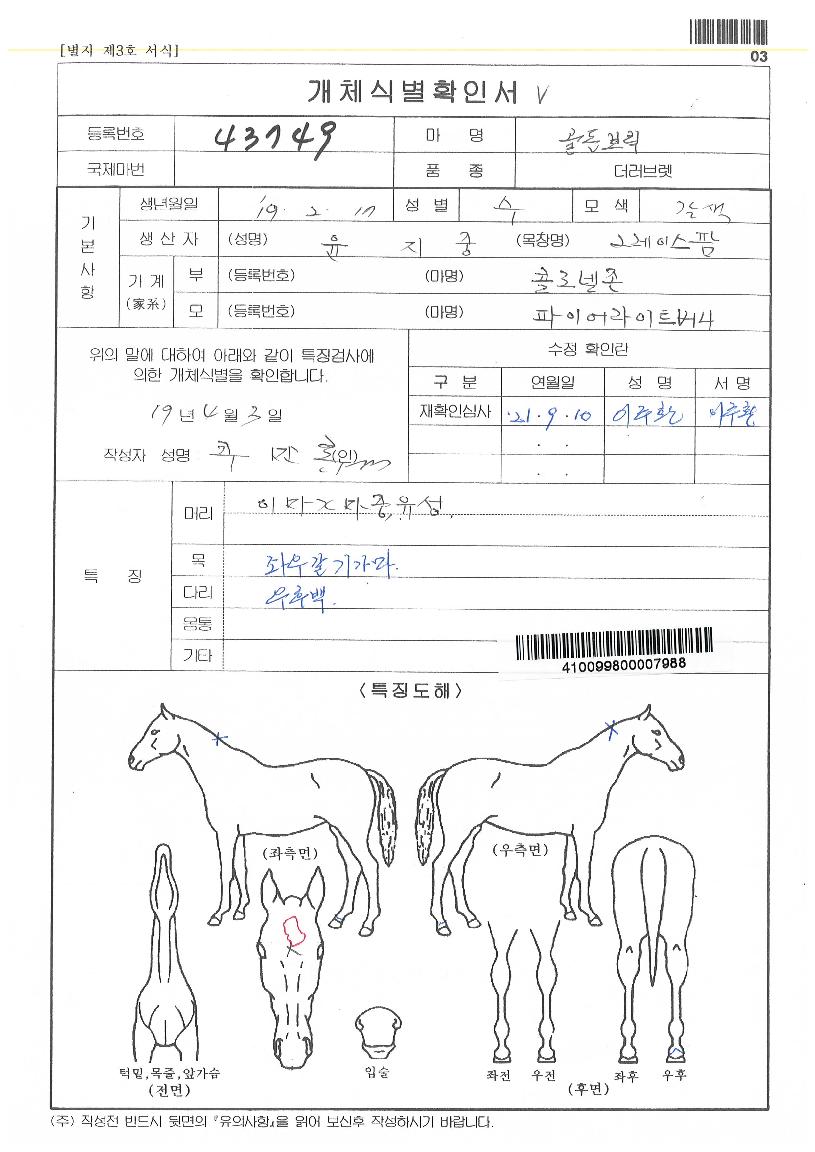 [별지 제3호 서식]
03
개체식별확인서 V
등록번호 43749 마 명 골든브릭
국제마번 품 종 더러브렛
기본사항
생년월일 '19. 2. 17 성 별 수 모 색 갈색
생 산 자 (성명) 윤 지 중 (목장명) 그레이스팜
가 계 (家系) 부 (등록번호) (마명) 콜로넬존
모 (등록번호) (마명) 파이어라이트버니
위의 말에 대하여 아래와 같이 특징검사에
의한 개체식별을 확인합니다.
19 년 4 월 3 일
작성자 성명 (인)
수정 확인란
구 분 연월일 성 명 서 명
재확인심사 '21. 9. 10 이주환 이주환
. .
. .
특 징
머리 이마가마중, 유성.
목 좌우갈기가마.
다리 우후백.
몸통
기타
410099800007988
〈특징도해〉
(좌측면) (우측면)
턱밑,목줄,앞가슴
(전면)
입술
좌전 우전 좌후 우후
(후면)
(주) 작성전 반드시 뒷면의 『유의사항』을 읽어 보신후 작성하시기 바랍니다.